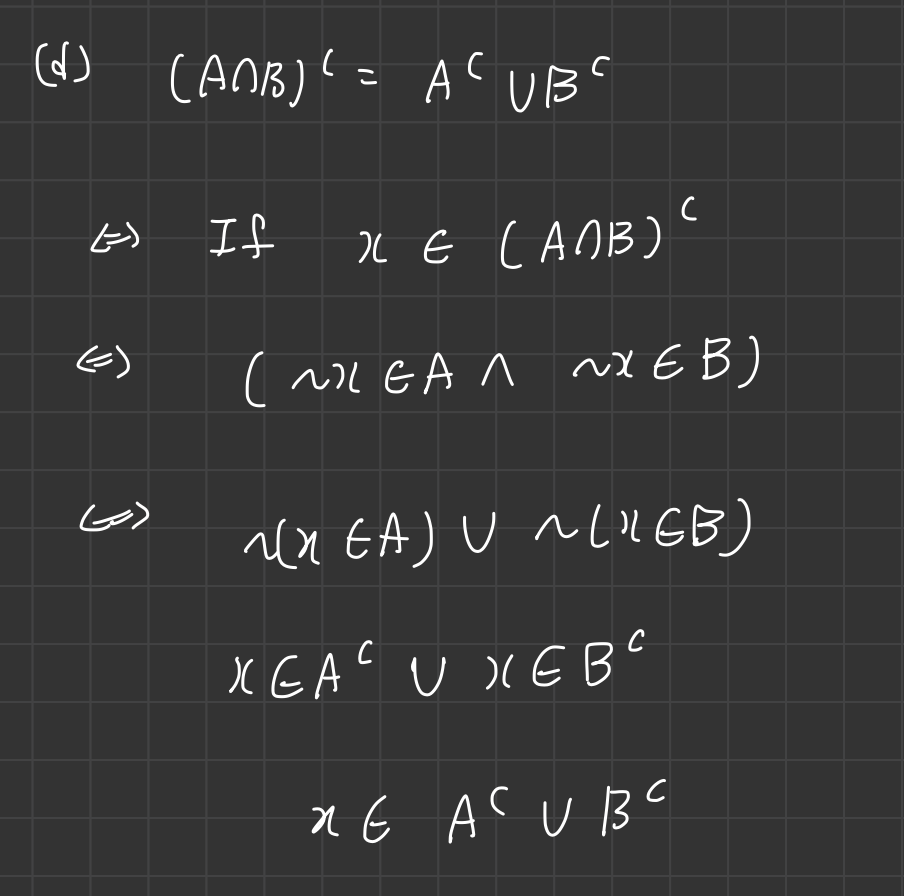 (d) (A∩B)ᶜ = Aᶜ ∪ Bᶜ
⇔ If x ∈ (A∩B)ᶜ
⇔ (~x ∈ A ∧ ~x ∈ B)
⇔ ~(x ∈ A) ∪ ~(x ∈ B)
x ∈ Aᶜ ∪ x ∈ Bᶜ
x ∈ Aᶜ ∪ Bᶜ